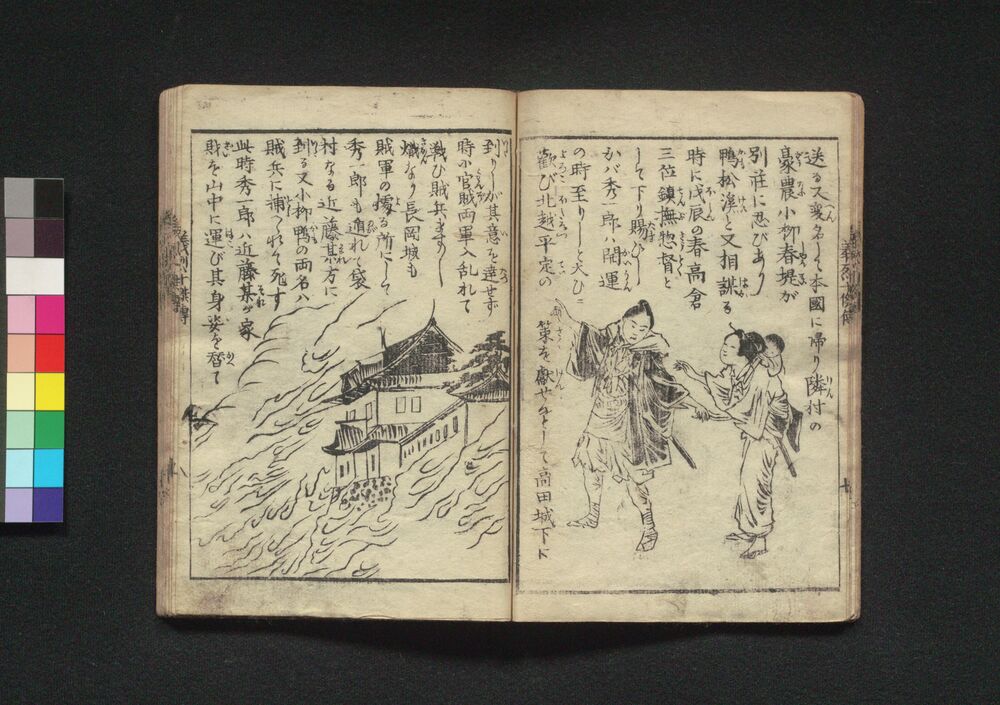 送る又変名して本國に帰り隣村の
豪農小柳春堤が
別荘に忍びあり
鴨松渓と又相謀る
時に戊辰の春高倉
三位鎮撫惣督と
して下り賜ひし
かバ秀一郎ハ開運
の時至りしと大ひに
歓び北越平定の
策を献せんとして高田城下に
到りしが其意を達せず
時に官賊両軍入乱れて
戦ひ賊兵ます〱
熾なり長岡城も
賊軍の據る所にして
秀一郎も遁れて袋
村なる近藤某が方に
到る又小柳鴨の両名ハ
賊兵に捕へられて死す
此時秀一郎ハ近藤某が家
財を山中に運び其身姿を替て